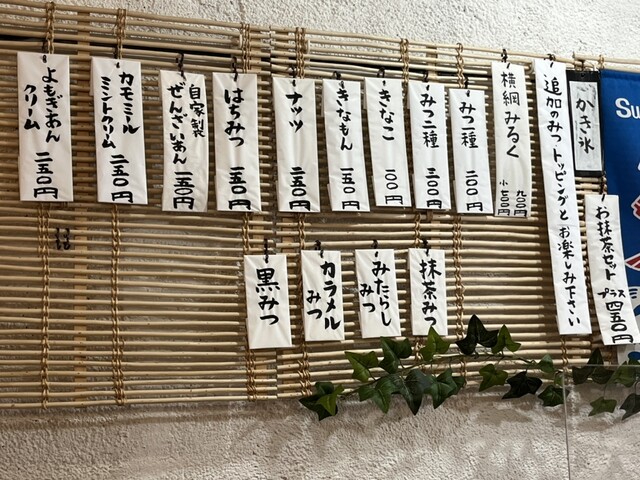 Su
かき氷
お抹茶セット
プラス四五〇円
追加のみつトッピングとお楽しみ下さい
横綱みるく
九〇〇円
小六〇〇円
みつ一種
二〇〇円
みつ二種
三〇〇円
きなこ
一〇〇円
きなもん
一五〇円
ナッツ
二五〇円
はちみつ
一五〇円
自家製
ぜんざいあん
一五〇円
カモミール
ミントクリーム
二五〇円
よもぎあん
クリーム
二五〇円
抹茶みつ
みたらし
みつ
カラメル
みつ
黒みつ